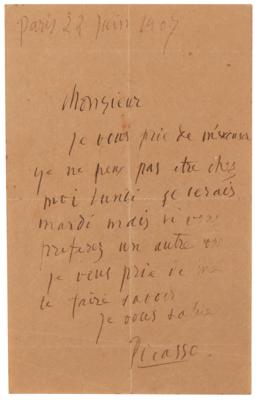 Paris 22 Juin 1907
Monsieur
Je vous prie de m'excuser
je ne peux pas etre chez
moi lundi je serais
mardi mais si vous
preferez un autre
je vous prie de me
le faire savoir
je vous salue
Picasso